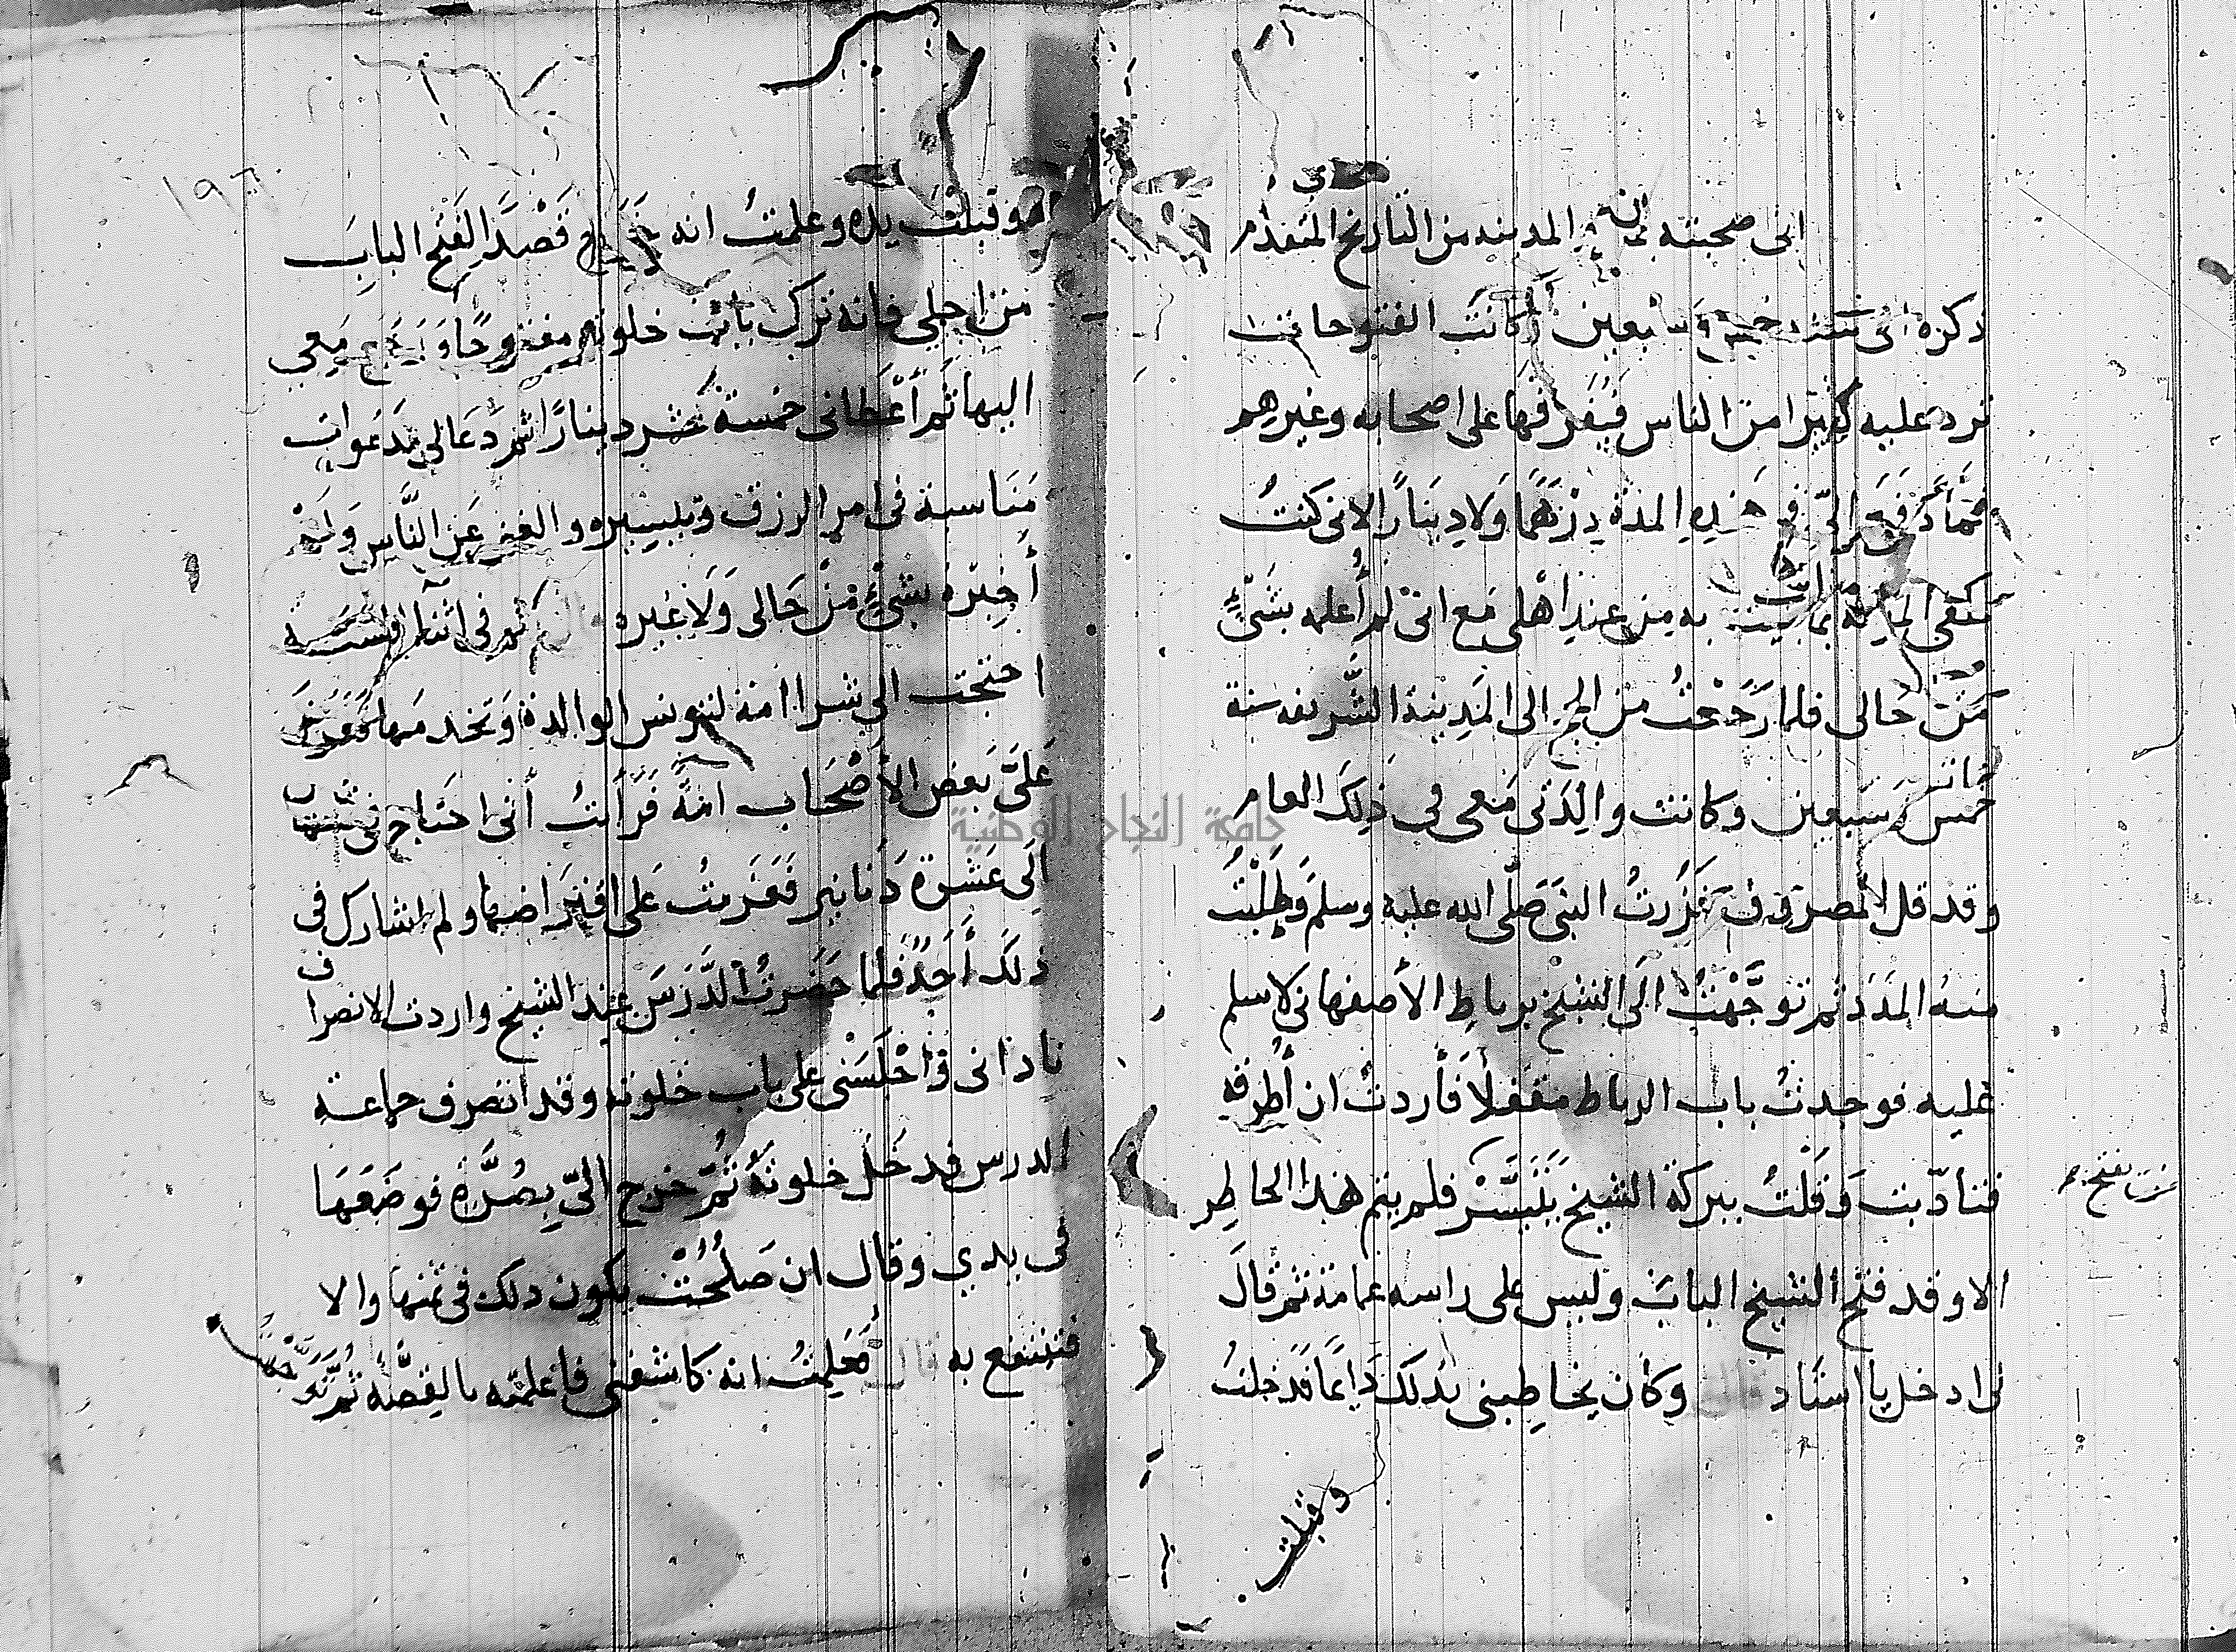 انى صحبته بالمدينه من التاريخ المتقدم
ذكره الى سنة خمس وسبعين وكانت الفتوحات
ترد عليه كثيرا من الناس فيُفرقها على اصحابه وغيرهم
فما دَفَعَ اليّ في هَذِهِ المدة دِرْهَمًا وَلا دِينَارًا لانى كنتُ
مكتفى بما به من عندِ اهْلى مَع انى لم أُعلمه بشَىْءٍ
مِنْ حَالى فلما رَجَعْتُ من الحج الى المَدِينة الشَّريفه سنة
خمس وَسَبعين وكانت والِدَتى مَعى فى ذلِكَ العام
وقد قل المصروف فَزُرتُ النبيَ صَلّى الله عليه وسلم وَطَلَبْتُ
منه المدَدَ ثم توجَّهْتُ الَى الشيخ برباطِ الأصفهانى لاسلم
عليه فوجدتُ باب الرباط مقفلاً فأردتُ ان أَطرقه
فتأدّبت وَقُلْتُ ببركة الشيخ يَتَيَسَّرْ فلم يتم هذا الخاطِر
الا وقد فتح الشيخ البابَ ولبس على راسه عمامة ثم قالَ
لى ادخل يا استاد قال وكان يخاطبنى بذلكَ دَائمًا فدَخلتُ
وقبلت
١٩٦
وقبلتُ يده وعلمتُ انه خَرَجَ قَصْدًا لفَتْح البابَ
من اجلى فانه ترك بابَ خلوته مفتوحًا وَرَجَع مَعِى
اليها ثم أَعْطانى خمسة عشر دينارًا ثم دَعَا لى بدَعَوات
مَنَاسبة فى امر الرزق وتيسيره والغنى عَن النَّاس وَلَمْ
أُخبِرْهُ بشىْءٍ مِنْ حَالى وَلاَ غيره قال ثم فى اثناء السنة
احتجت الى شرا امة لتونس الوالدة وَتخدمها فَعَرَضَ
عَلَىَّ بعض الأَصْحَاب امَةً فَرَأيتُ أنى احتاج فى ثمنها
الَى عَشْرة دَنانير فَعَزمتُ عَلى اقتراضها ولم اشارك فى
ذلكَ أَحَدً فلما حَضَرتُ الدَّرسَ عِند الشيخ واردت الانصراف
نادَانى وَأجْلَسَنى على باب خلوته وقد انصرف جماعة
الدرس فدَخَل خلوتهُ ثُمّ خرج اليَّ بِصُرَّةٍ فوضعَهَا
فى يدي وقال ان صَلُحَتْ يكون ذلك فى ثمنها والا
فتنتفع به قال فعَلِمتُ انه كاشفنى فاعلمته بالقِصَّه ثم تَوَجَّهْتُ